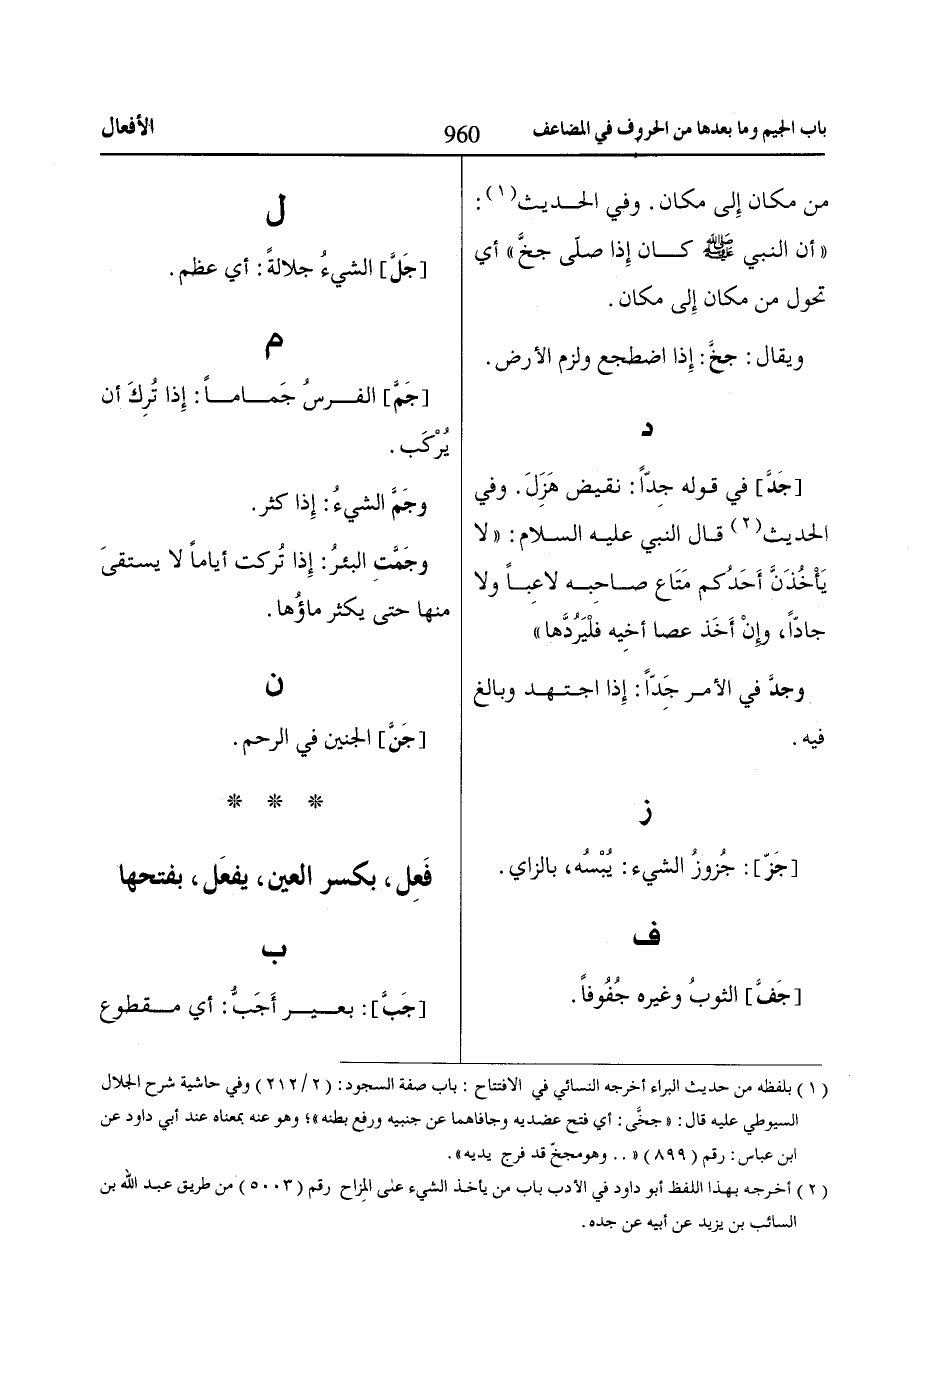 باب الجيم وما بعدها من الحروف في المضاعف
960
الأفعال
من مكان إلى مكان. وفي الحديث(١):
«أن النبي ﷺ كان إذا صلّى جخَّ» أي
تحول من مكان إلى مكان.
ويقال: جخَّ: إذا اضطجع ولزم الأرض.
د
[جَدَّ] في قوله جِدّاً: نقيض هَزَلَ. وفي
الحديث(٢) قال النبي عليه السلام: «لا
يَأْخُذَنَّ أَحَدُكم مَتَاع صاحبه لاعباً ولا
جادّاً، وإنْ أَخَذ عصا أخيه فلْيَرُدَّها»
وجدَّ في الأمر جَدّاً: إذا اجتهد وبالغ
فيه.
ز
[جَزّ]: جُزوزُ الشيء: يُبْسُه، بالزاي.
ف
[جَفَّ] الثوبُ وغيره جُفُوفاً.
ل
[جَلَّ] الشيءُ جلالةً: أي عظم.
م
[جَمَّ] الفرسُ جَماماً: إذا تُرِكَ أن
يُرْكَب.
وجَمَّ الشيءُ: إذا كثر.
وجَمَّت البئرُ: إذا تُركت أياماً لا يستقىَ
منها حتى يكثر ماؤُها.
ن
[جَنَّ] الجنين في الرحم.
* * *
فَعِل، بكسر العين، يفعَل، بفتحها
ب
[جَبَّ]: بعير أَجَبُّ: أي مقطوع
(١) بلفظه من حديث البراء أخرجه النسائي في الافتتاح: باب صفة السجود: (٢/٢١٢) وفي حاشية شرح الجلال
السيوطي عليه قال: «جخَّى: أي فتح عضديه وجافاهما عن جنبيه ورفع بطنه»؛ وهو عنه بمعناه عند أبي داود عن
ابن عباس: رقم (٨٩٩) «.. وهومجخّ قد فرج يديه».
(٢) أخرجه بهذا اللفظ أبو داود في الأدب باب من يأخذ الشيء على المزاح رقم (٥٠٠٣) من طريق عبد الله بن
السائب بن يزيد عن أبيه عن جده.